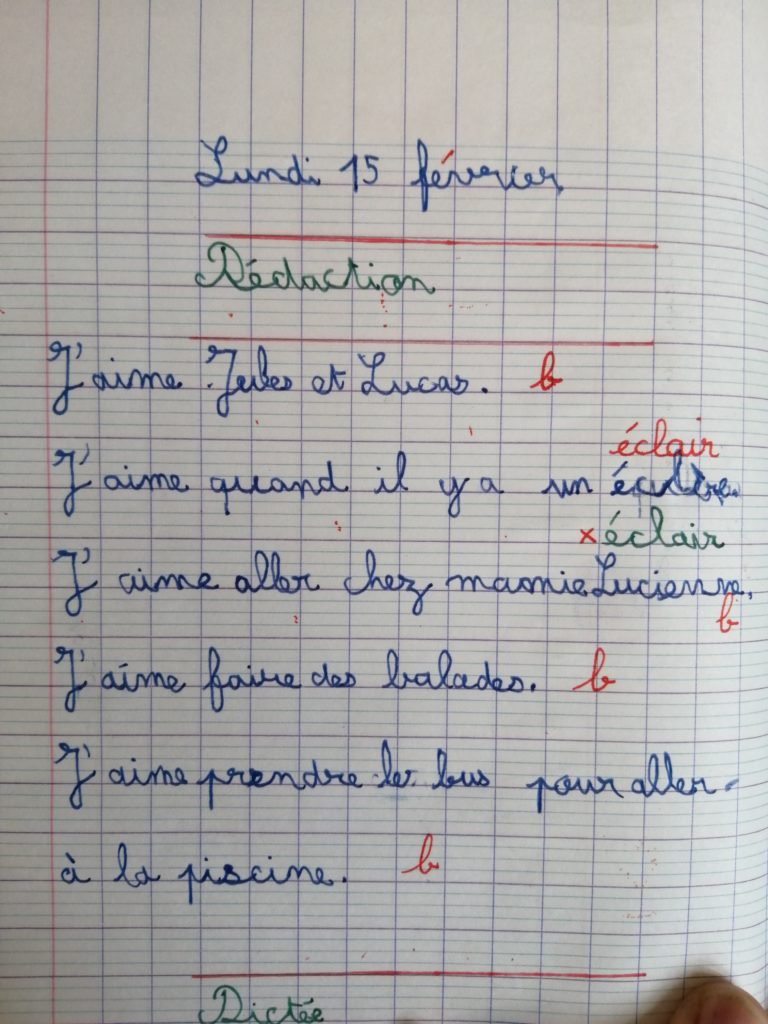 Lundi 15 février
Rédaction
J'aime Jules et Lucas. b
éclair
J'aime quand il y a un
x éclair
J'aime aller chez mamie Lucienne.
b
J'aime faire des balades. b
J'aime prendre le bus pour aller
à la piscine. b
Dictée